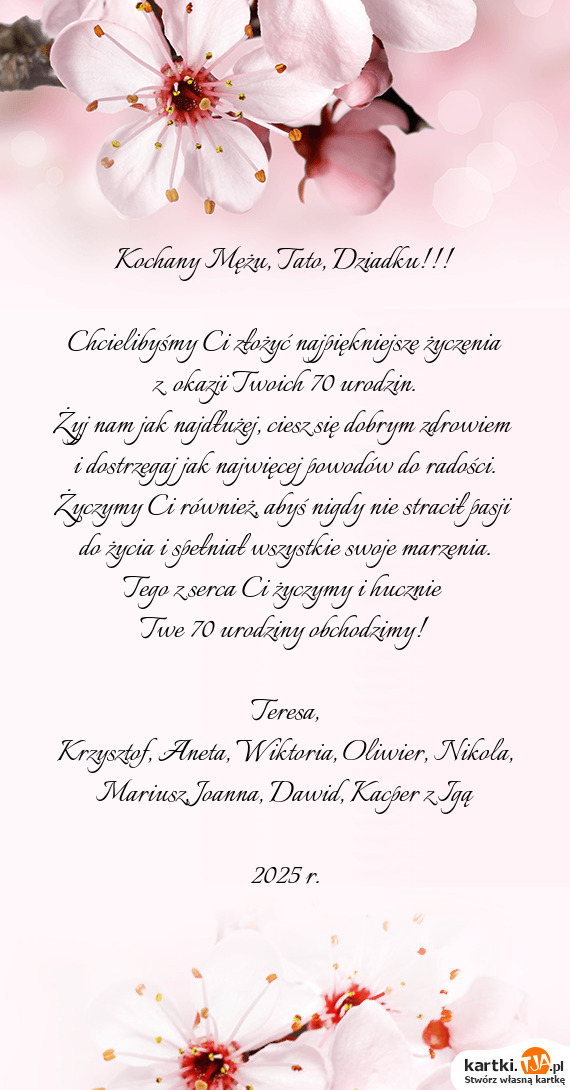 Kochany Mężu, Tato, Dziadku!!!
Chcielibyśmy Ci złożyć najpiękniejsze życzenia
z okazji Twoich 70 urodzin.
Żyj nam jak najdłużej, ciesz się dobrym zdrowiem
i dostrzegaj jak najwięcej powodów do radości.
Życzymy Ci również, abyś nigdy nie stracił pasji
do życia i spełniał wszystkie swoje marzenia.
Tego z serca Ci życzymy i hucznie
Twe 70 urodziny obchodzimy!
Teresa,
Krzysztof, Aneta, Wiktoria, Oliwier, Nikola,
Mariusz, Joanna, Dawid, Kacper z Igą
2025 r.
kartki.TJA.pl
Stwórz własną kartkę